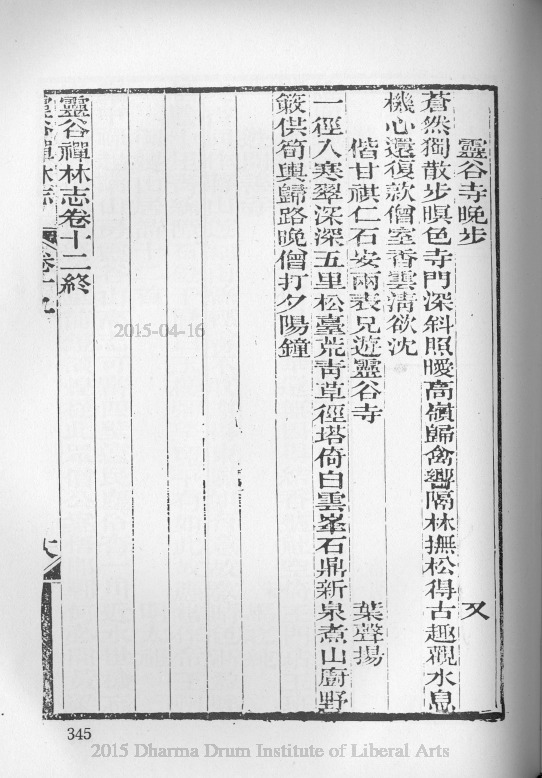 靈谷寺晚步　又
蒼然獨散步暝色寺門深斜照曖高嶺歸禽響隔林撫松得古趣觀水息
機心還復款僧室香雲淸欲沈
偕甘祺仁石安兩表兄遊靈谷寺　葉聲揚
一徑入寒翠深深五里松臺荒靑草徑塔倚白雲峯石鼎新泉煮山廚野
簌供筍輿歸路晚僧打夕陽鐘
靈谷禪林志卷十二終
靈谷禪林志
345
2015-04-16
2015 Dharma Drum Institute of Liberal Arts